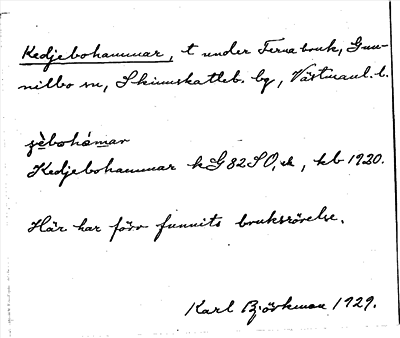 Kedjebohammar, t under Ferna bruk, Gun-
nilbo sn, Skinnskatteb. bg, Västmanl. l.
Kedjebohammar kG 82 SO, ek, kb 1920.
Här har förr funnits bruksrörelse.
Karl Björkman 1929.